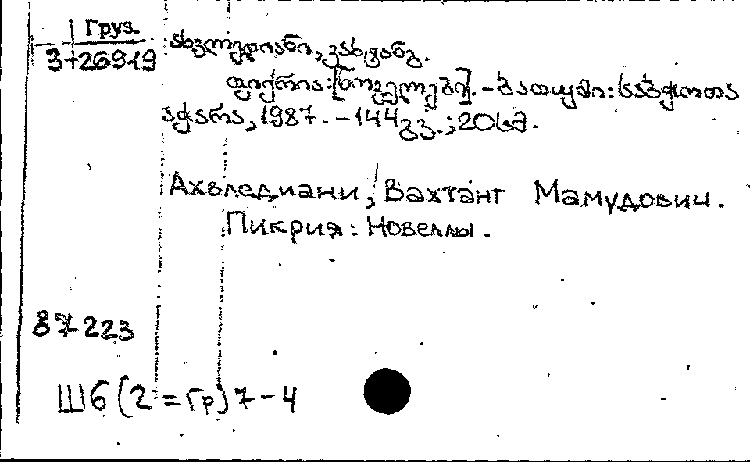 Груз.
3-26919
ახვლედიანი, ვახტანგ.
ფიქრია: [ნოველები]. - ბათუმი: საბჭოთა
აჭარა, 1987. - 144 გვ.; 20 სმ.
Ахвледиани, Вахтанг Мамудович.
Пикрия: Новеллы.
87-223
Ш6(2=Гр)7-4